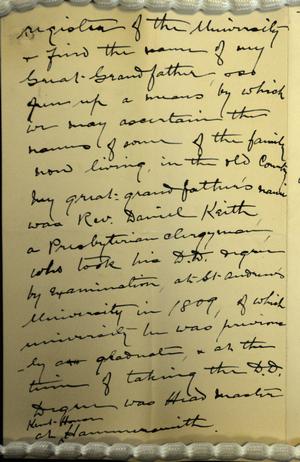 register of the University
& find the name of my
Great-Grandfather, & so
open up a means by which
we may ascertain the
names of some of the family
now living in the old County
My great-grandfather's name
was Rev. Daniel Keith,
a Presbyterian clergyman,
who took his D.D. degree
by examination, at St. Andrews
University in 1809, of which
university he was previous
-ly a graduate, & at the
time of taking the D.D.
Degree was Head Master
Kent-House
at Hammersmith.